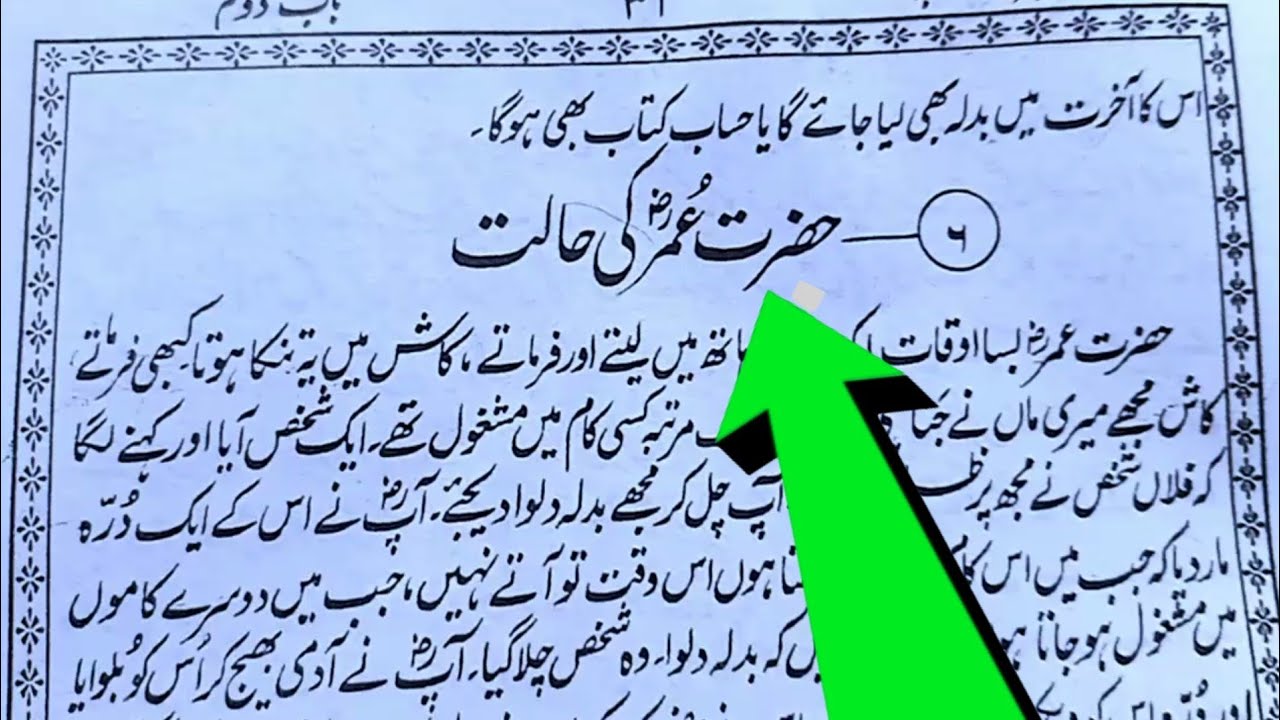 باب دوم
اس کا آخرت میں بدلہ بھی لیا جائے گا یا حساب کتاب بھی ہوگا۔
۶ حضرت عمرؓ کی حالت
حضرت عمرؓ بسا اوقات میں لیتے اور فرماتے، کاش میں یہ تنکا ہوتا۔ کبھی فرماتے
کاش مجھے میری ماں نے جنا مرتبہ کسی کام میں مشغول تھے۔ ایک شخص آیا اور کہنے لگا
کہ فلاں شخص نے مجھ پر آپ چل کر مجھے بدلہ دلوا دیجئے۔ آپؓ نے اس کے ایک دُرّہ
مار دیا کہ جب میں اس ہوں اس وقت تو آتے نہیں، جب میں دوسرے کاموں
میں مشغول ہو جاتا کہ بدلہ دلوا۔ وہ شخص چلا گیا۔ آپؓ نے آدمی بھیج کر اُس کو بلوایا